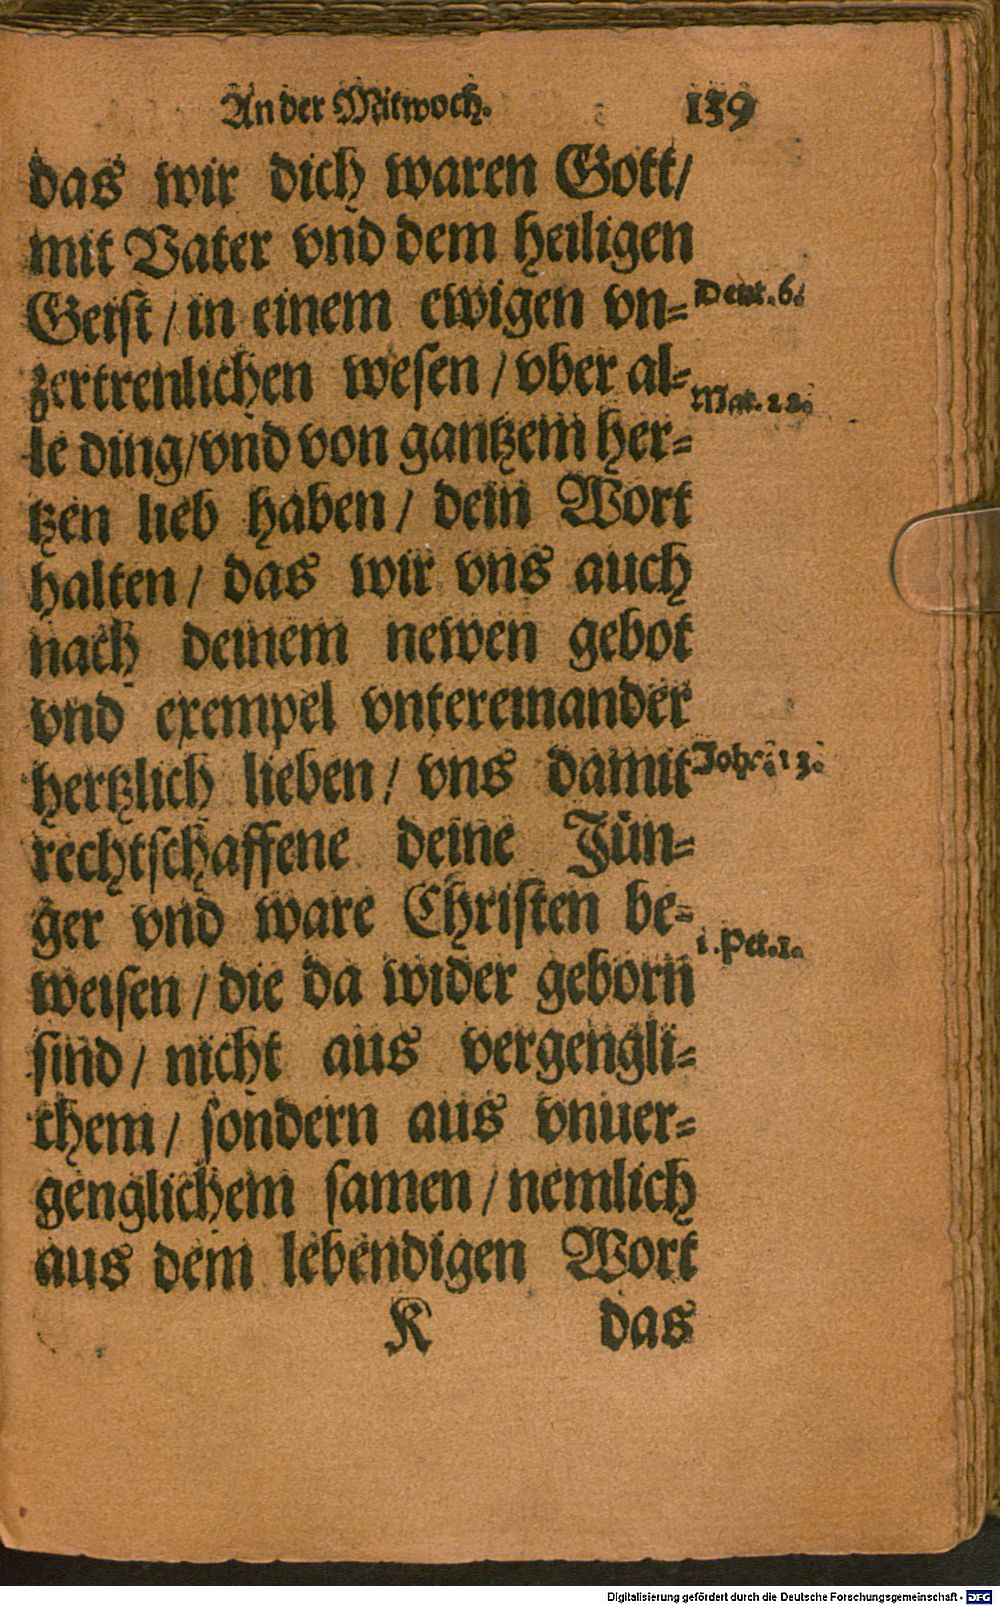 An der Mitwoch. 159
das wir dich waren Gott/
mit Vater vnd dem heiligen
Geist / in einem ewigen vn=
Deut. 6.
zertrenlichen wesen / vber al=
Mat. 22.
le ding/vnd von gantzem her=
tzen lieb haben / dein Wort
halten / das wir vns auch
nach deinem newen gebot
vnd exempel vntereinander
hertzlich lieben / vns damit
Joh. 13.
rechtschaffene deine Jün=
ger vnd ware Christen be=
1. Pet. 1.
weisen / die da wider geborn
sind / nicht aus vergengli=
chem / sondern aus vnuer=
genglichem samen / nemlich
aus dem lebendigen Wort
K das
Digitalisierung gefördert durch die Deutsche Forschungsgemeinschaft - DFG